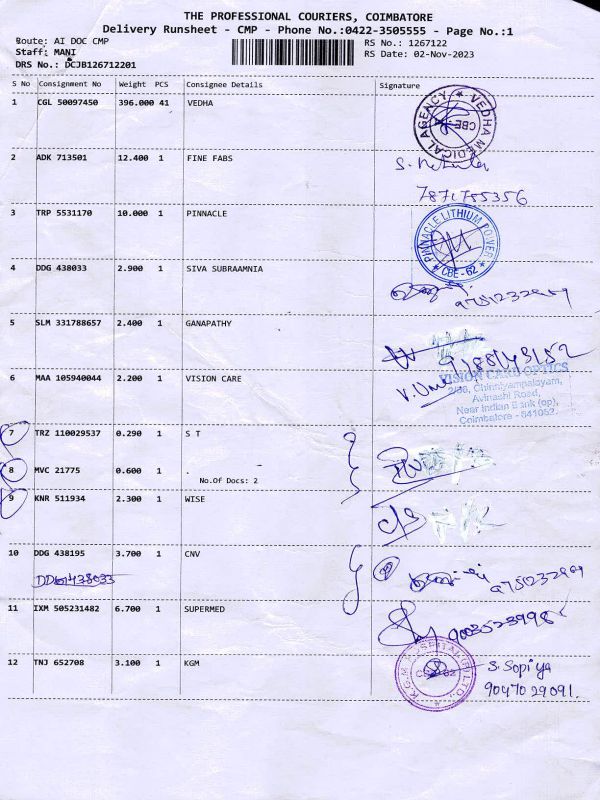 THE PROFESSIONAL COURIERS, COIMBATORE
Delivery Runsheet - CMP - Phone No.:0422-3505555 - Page No.:1
Route: AI DOC CMP
RS No.: 1267122
Staff: MANI
RS Date: 02-Nov-2023
DRS No.: DCJB126712201
S No Consignment No Weight PCS Consignee Details Signature
1 CGL 50097450 396.000 41 VEDHA
VEDHA MEDICAL AGENCY
CBE
2 ADK 713501 12.400 1 FINE FABS
7871755356
3 TRP 5531170 10.000 1 PINNACLE
PINNACLE LITHIUM POWER
CBE-62
4 DDG 438033 2.900 1 SIVA SUBRAAMNIA
5 SLM 331788657 2.400 1 GANAPATHY
6 MAA 105940044 2.200 1 VISION CARE
VISION CARE OPTICS
Chinniyampalayam,
Avinashi Road,
Near Indian Bank (op),
Coimbatore - 641062.
7 TRZ 110029537 0.290 1 S T
8 MVC 21775 0.600 1 .
No.Of Docs: 2
9 KNR 511934 2.300 1 WISE
10 DDG 438195 3.700 1 CNV
DDG438033
11 IXM 505231482 6.700 1 SUPERMED
9003523998
12 TNJ 652708 3.100 1 KGM
S. Sopiya
9047029091.